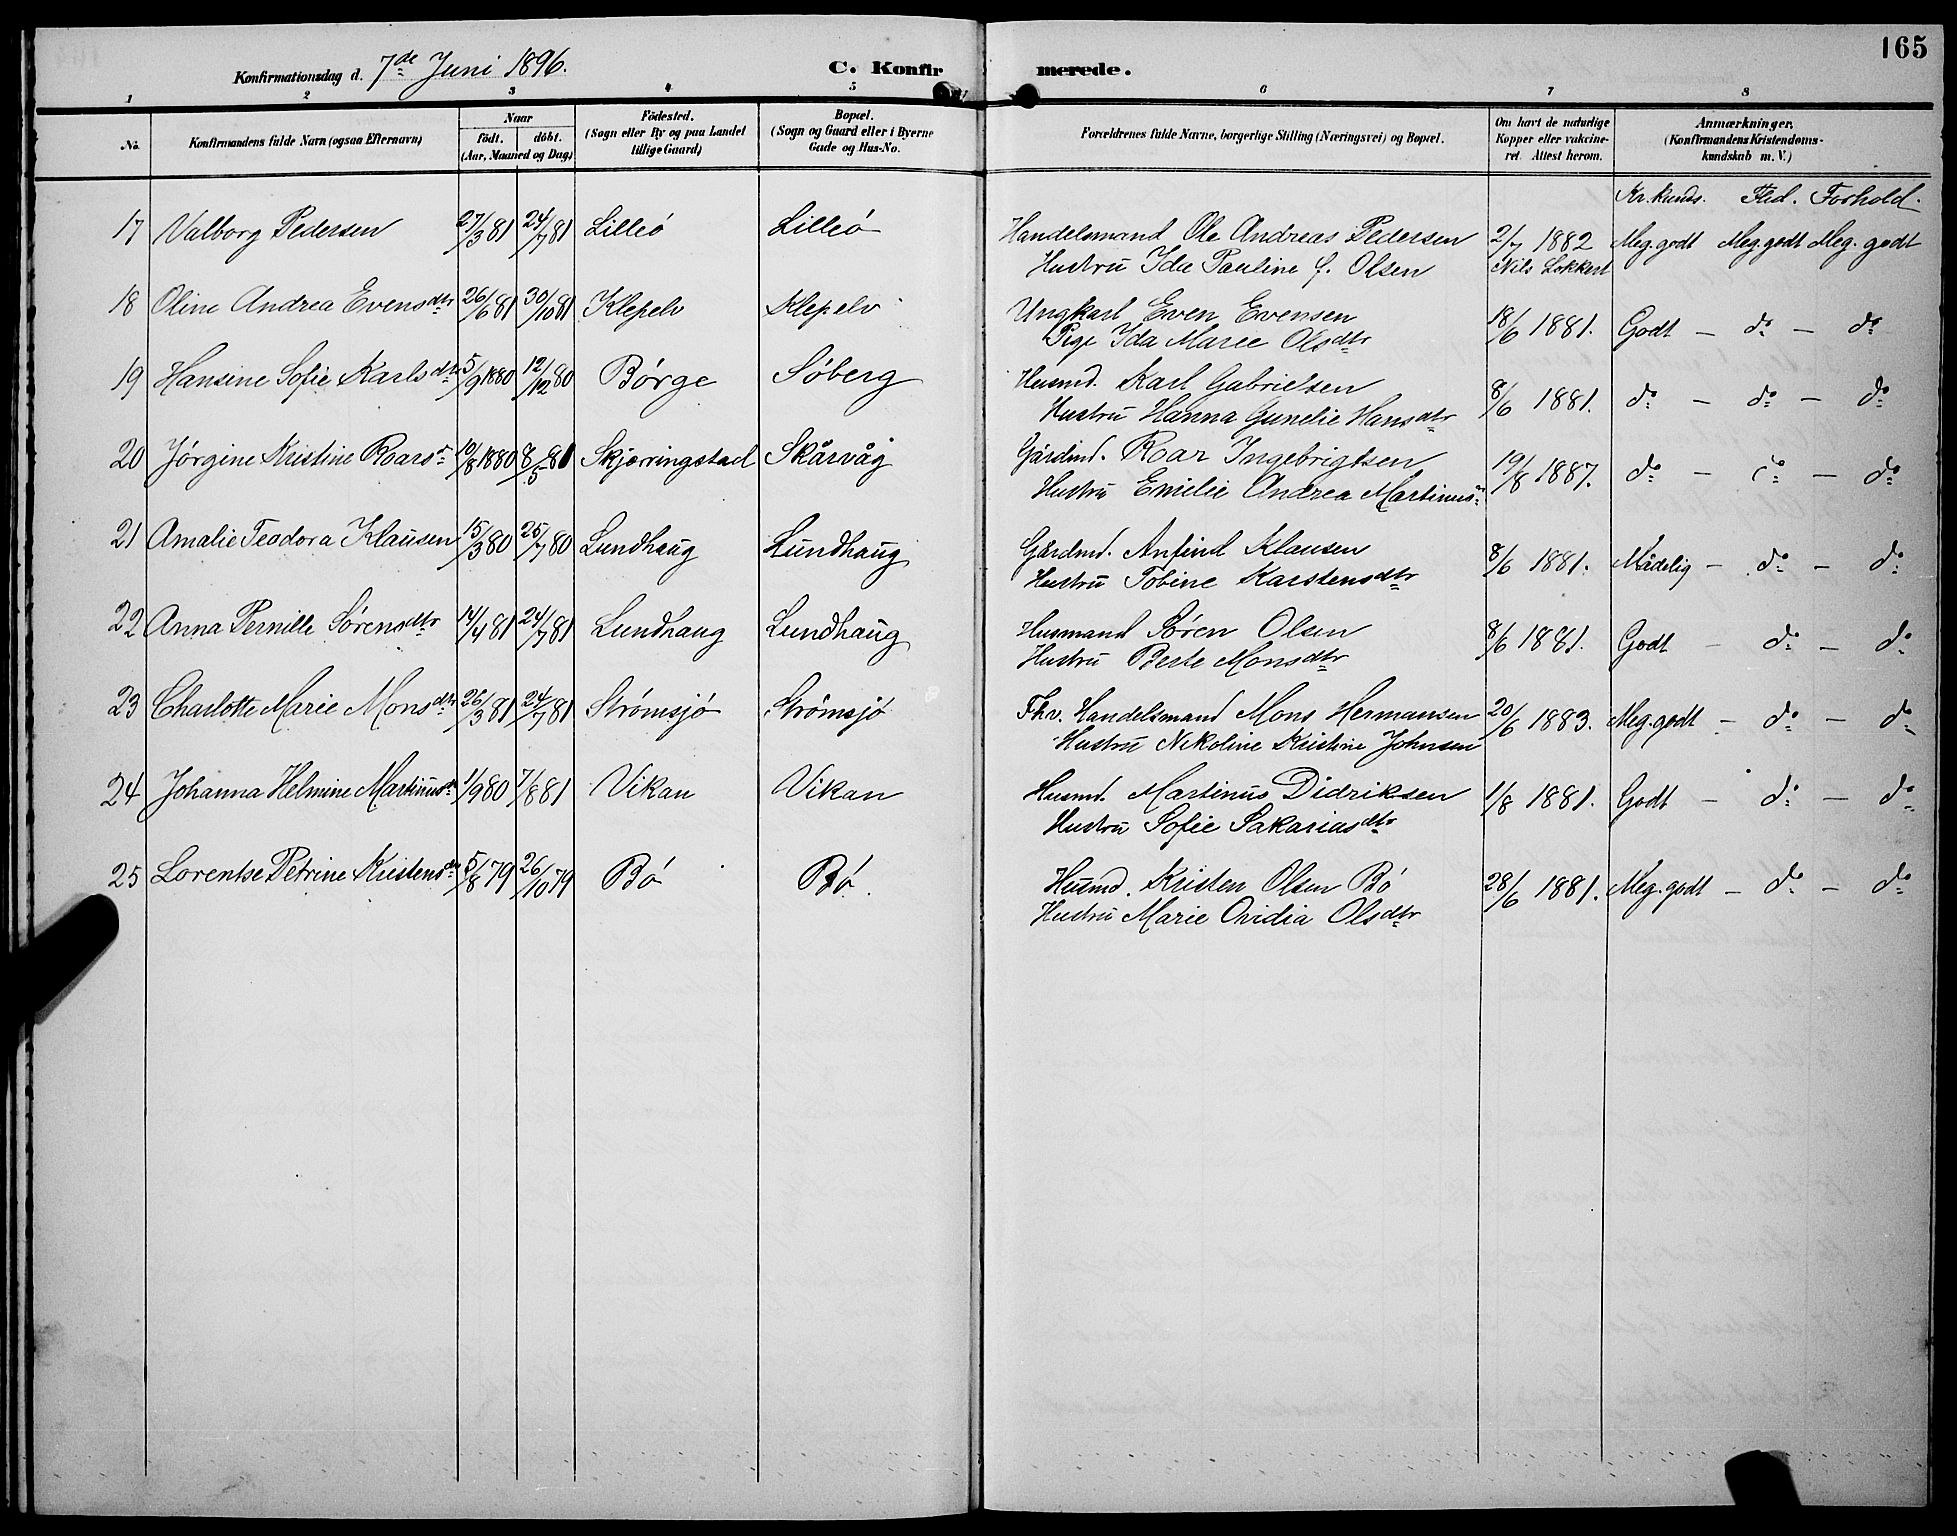 165
Konfirmationsdag d. 7de Juni 1896. C. Konfirmerede.
1 2 3 4 5 6 7 8
No. Konfirmandens fulde Navn (ogsaa Efternavn) Naar födt. döbt. (Aar, Maaned og Dag) Födested. (Sogn eller By og paa Landet tillige Gaard) Bopæl. (Sogn og Gaard eller i Byerne Gade og Hus-No. Forældrenes fulde Navne, borgerlige Stilling (Næringsvei) og Bopæl. Om havt de naturlige Kopper eller vakcineret. Attest herom. Anmærkninger. (Konfirmandens Kristendomskundskab m. V.)
Kr. kunds. Flid. Forhold.
17 Valborg Pedersen 27/3 81 24/7 81 Lilleö Lilleö Handelsmand Ole Andreas Pedersen 2/7 1882 Meg. godt Meg. godt Meg. godt
Hustru Ida Pauline f. Olsen Nils Lokkert
18 Oline Andrea Evensdtr 26/6 81 30/10 81 Klepelv Klepelv Ungkarl Even Evensen 18/6 1881. Godt — do — do
Pige Ida Maree Olsdtr
19 Hansine Sofie Karlsdtr 5/9 1880 12/12 80 Börge Söberg Husmd. Karl Gabrielsen 8/6 1881. do — do — do
Hustru Hanna Gunelie Hansdtr
20 Jörgine Kristine Roarsd 10/8 1880 8/5 81 Skjærringstad Skårvåg Gårdmd. Roar Ingebrigtsen 19/8 1887. do — do — do
Hustru Emelie Andrea Martinusd
21 Amalie Teodora Klausen 15/3 80 25/7 80 Lundhaug Lundhaug Gårdmd. Anfind Klausen 8/6 1881. Mådelig — do — do
Hustru Tobine Karstensdtr
22 Anna Pernille Sörensdtr 14/4 81 24/7 81 Lundhaug Lundhaug Husmand Sören Olsen 8/6 1881. Godt — do — do
Hustru Berte Monsdtr
23 Charlotte Marie Monsdtr 26/3 81 24/7 81 Strömsjö Strömsjö Fhv. Handelsmand Mons Hermansen 20/6 1883. Meg. godt — do — do
Hustru Nikoline Kristine Johnsen
24 Johanna Helmine Martinusd 1/9 80 7/8 81 Vikan Vikan Husmd. Martinus Didriksen 1/8 1881. Godt — do — do
Hustru Sofie Sakariasdtr
25 Lorentse Petrine Kristensdtr 5/8 79 26/10 79 Bö Bö. Husmd. Kristen Olsen Bö 28/6 1881. Meg. godt — do — do
Hustru Marie Ovidia Olsdtr